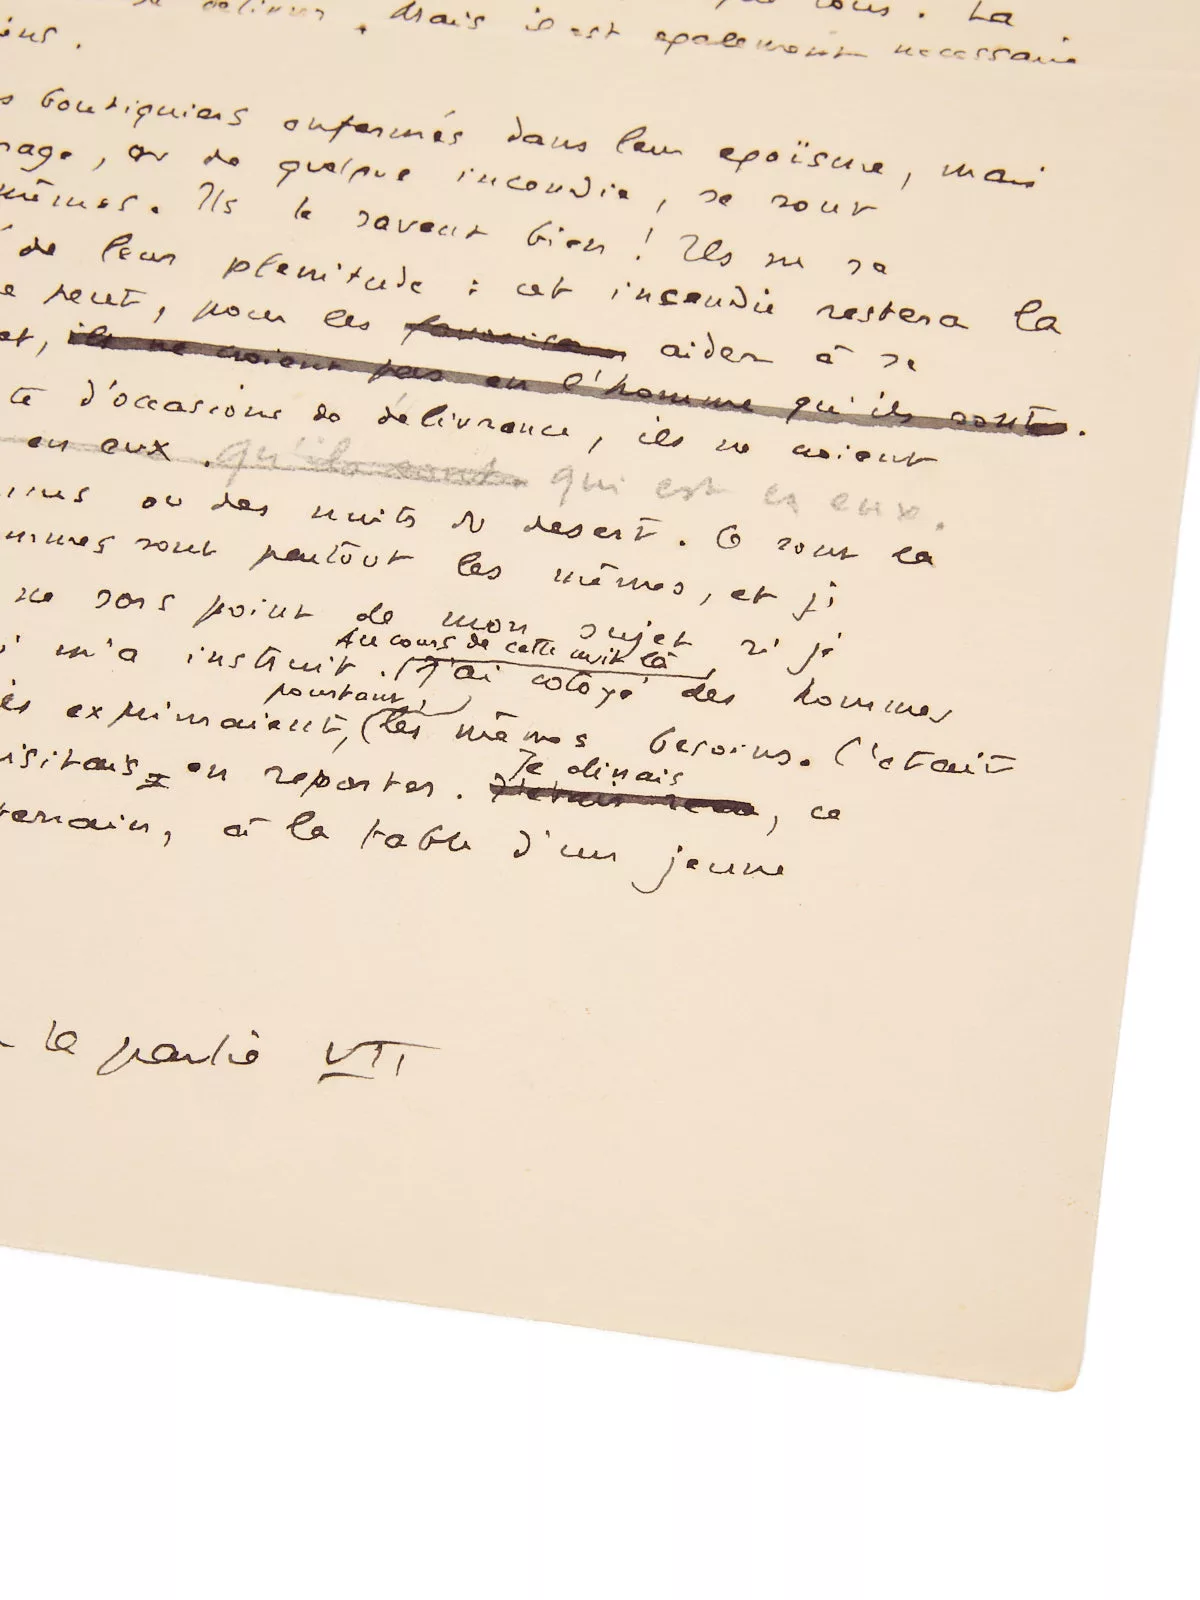 délivrer. Mais il est également nécessaire
tous. La
boutiquiers enfermés dans leur égoïsme, mais
rage, ou de quelque incendie, se sont
mêmes. Ils le savent bien ! Ils ne se
de leur plénitude : cet incendie restera la
peut, pour les favoriser aider à se
et, ils ne croient pas en l'homme qu'ils sont.
d'occasions de délivrance, ils ne croient
en eux. qu'ils sont qui est en eux.
ou des nuits du désert. Ce sont là
sont partout les mêmes, et je
ne sors point de mon sujet si je
Au cours de cette nuit là
m'a instruit. (J'ai cotoyé des hommes
pourtant,
exprimaient, (les mêmes besoins. C'était
Je dinais
en reporter. J'étais, ce
à la table d'un jeune
la partie VII